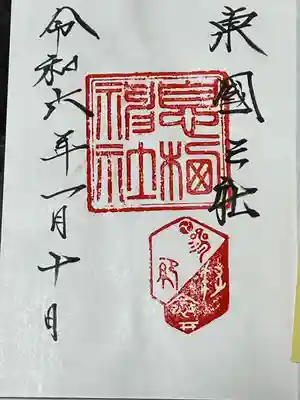 東國三社
息栖神社
令和六年一月十日